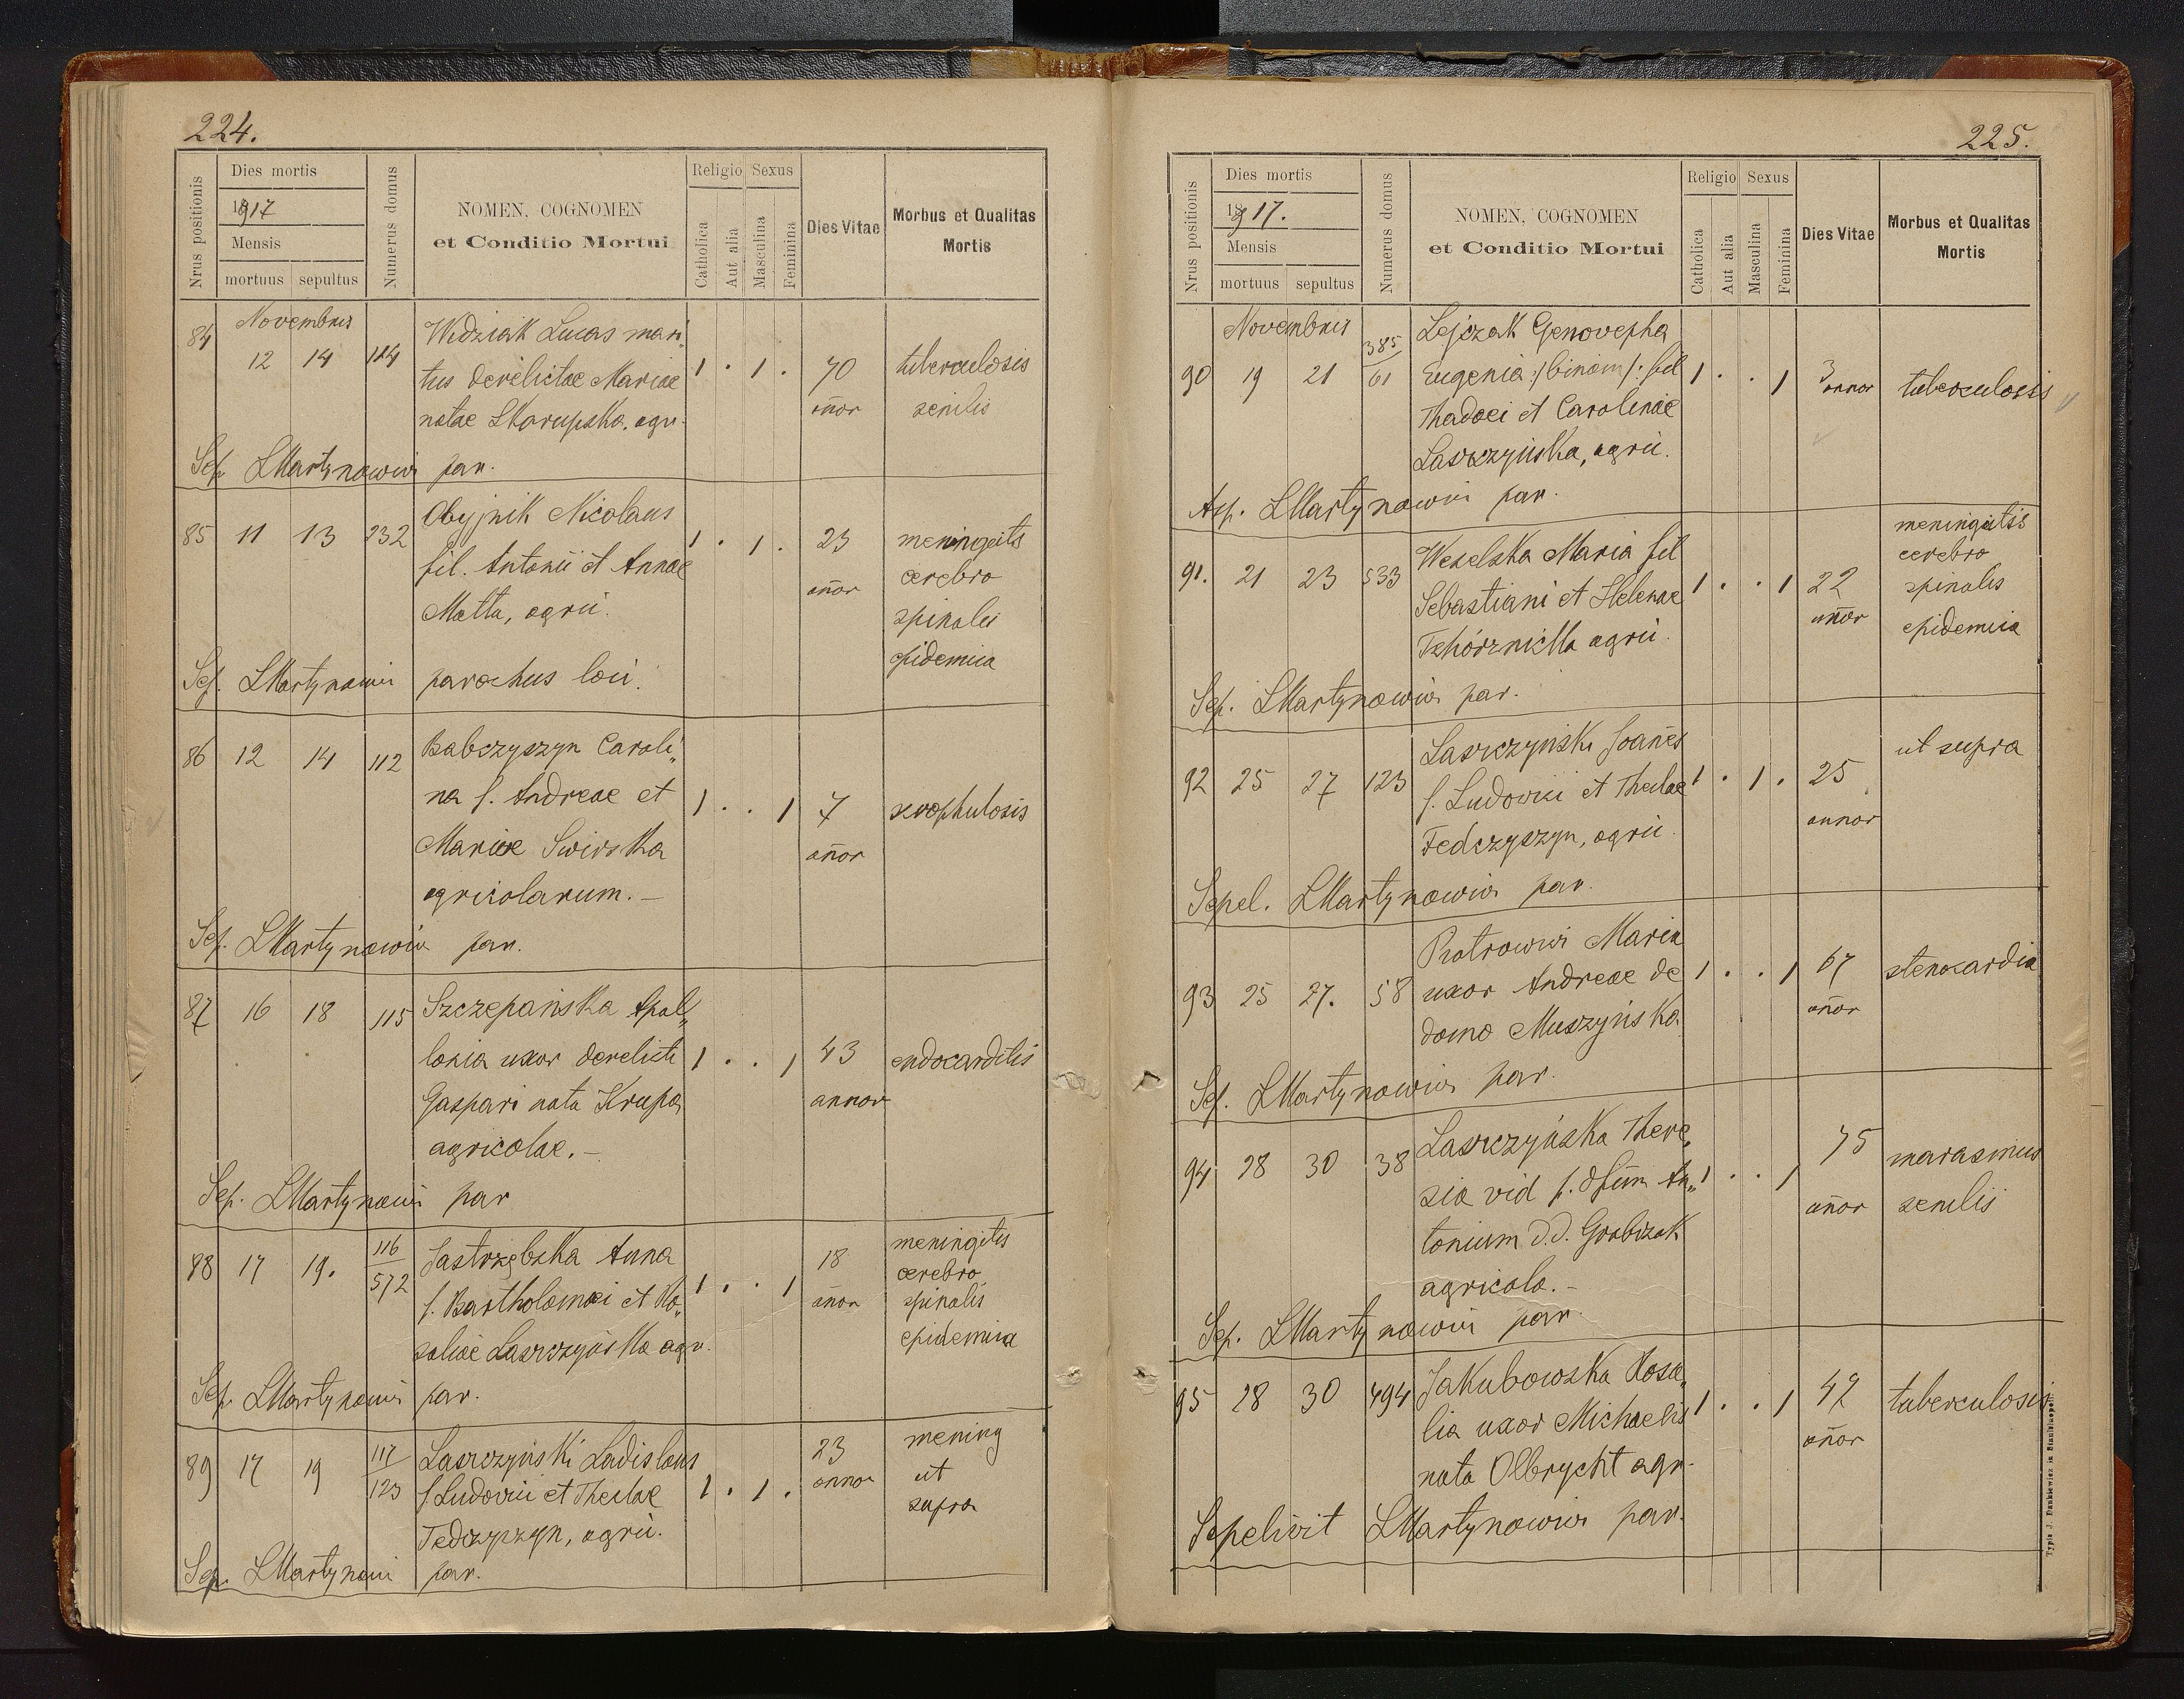 224.
Nrus positionis
Dies mortis
1917
Mensis
mortuus sepultus
Numerus domus
NOMEN, COGNOMEN
et Conditio Mortui
Religio Sexus
Catholica
Aut alia
Masculina
Feminina
Dies Vitae
Morbus et Qualitas
Mortis
Novembris
84 12 14 124 Widziak Lucas mari„
tus derelictae Mariae 1 . 1 . 70 tuberculosis
natae Skarupska. agr. añor senilis
Sep. LMartynowicz par.
85 11 13 232 Obyjnik Nicolaus
fil. Antonii et Annae 1 . 1 . 23 meningeitis
Matta, agrii. añor cerebro
spinalis
epidemica
Sep. LMartynowicz parochus loci.
86 12 14 112 Babczyszyn Caroli„
na f. Andreae et 1 . . 1 7 scrophulosis
Mariae Swirska añor
agricolarum. —
Sep. LMartynowicz par.
87 16 18 115 Szczepańska Apol„
lonia uxor derelicti 1 . . 1 43 endocarditis
Gaspari nata Krupa annor
agricolae. —
Sep. LMartynowicz par
88 17 19. 116/572 Jastrzębska Anna 18 meningitis
f. Bartholomaei et Ro„ 1 . . 1 añor cerebro
saliae Laszczyńska agr. spinalis
epidemica
Sep. LMartynowicz par.
89 17 19 117/123 Laszczyński Ladislaus 23 mening
f. Ludovici et Theclae 1 . 1 . annor ut
Fedczyszyn, agrii. supra
Sep. LMartynowicz par.
225.
Nrus positionis
Dies mortis
1917.
Mensis
mortuus sepultus
Numerus domus
NOMEN, COGNOMEN
et Conditio Mortui
Religio Sexus
Catholica
Aut alia
Masculina
Feminina
Dies Vitae
Morbus et Qualitas
Mortis
Novembris
90 19 21 385/61 Lejczak Genovepha
Eugenia :/binom/: fil 1 . . 1 3 annor tuberculosis
Thadaei et Carolinae
Laszczyńska, agrii.
Sep. LMartynowicz par.
91. 21 23 533 Weselska Maria fil meningitis
Sebastiani et Helenae 1 . . 1 22 cerebro
Tchórznicka agrii. añor spinalis
epidemica
Sep. LMartynowicz par.
92 25 27 123 Laszczynski Joañes ut supra
f. Ludovici et Theclae 1 . 1 . 25
Fedczyszyn, agrii. annor
Sepel. LMartynowicz par.
93 25 27. 58 Piotrowicz Maria
uxor Andreae de 1 . . 1 67 stenocardia
domo Muszyńska añor
Sep. LMartynowicz par.
94 28 30 38 Laszczyńska There„ 75 marasmus
sia vid p. dfum An„ 1 . . 1 añor senilis
tonium d.d. Grabczak
agricola. —
Sep. LMartynowicz par.
95 28 30 494 Jakubowska Rosa„
lia uxor Michaelis 1 . . 1 42 tuberculosis
nata Olbrycht agr. añor
Sepelivit LMartynowicz par.
Typis J. Dankiewicz in Stanislaopoli